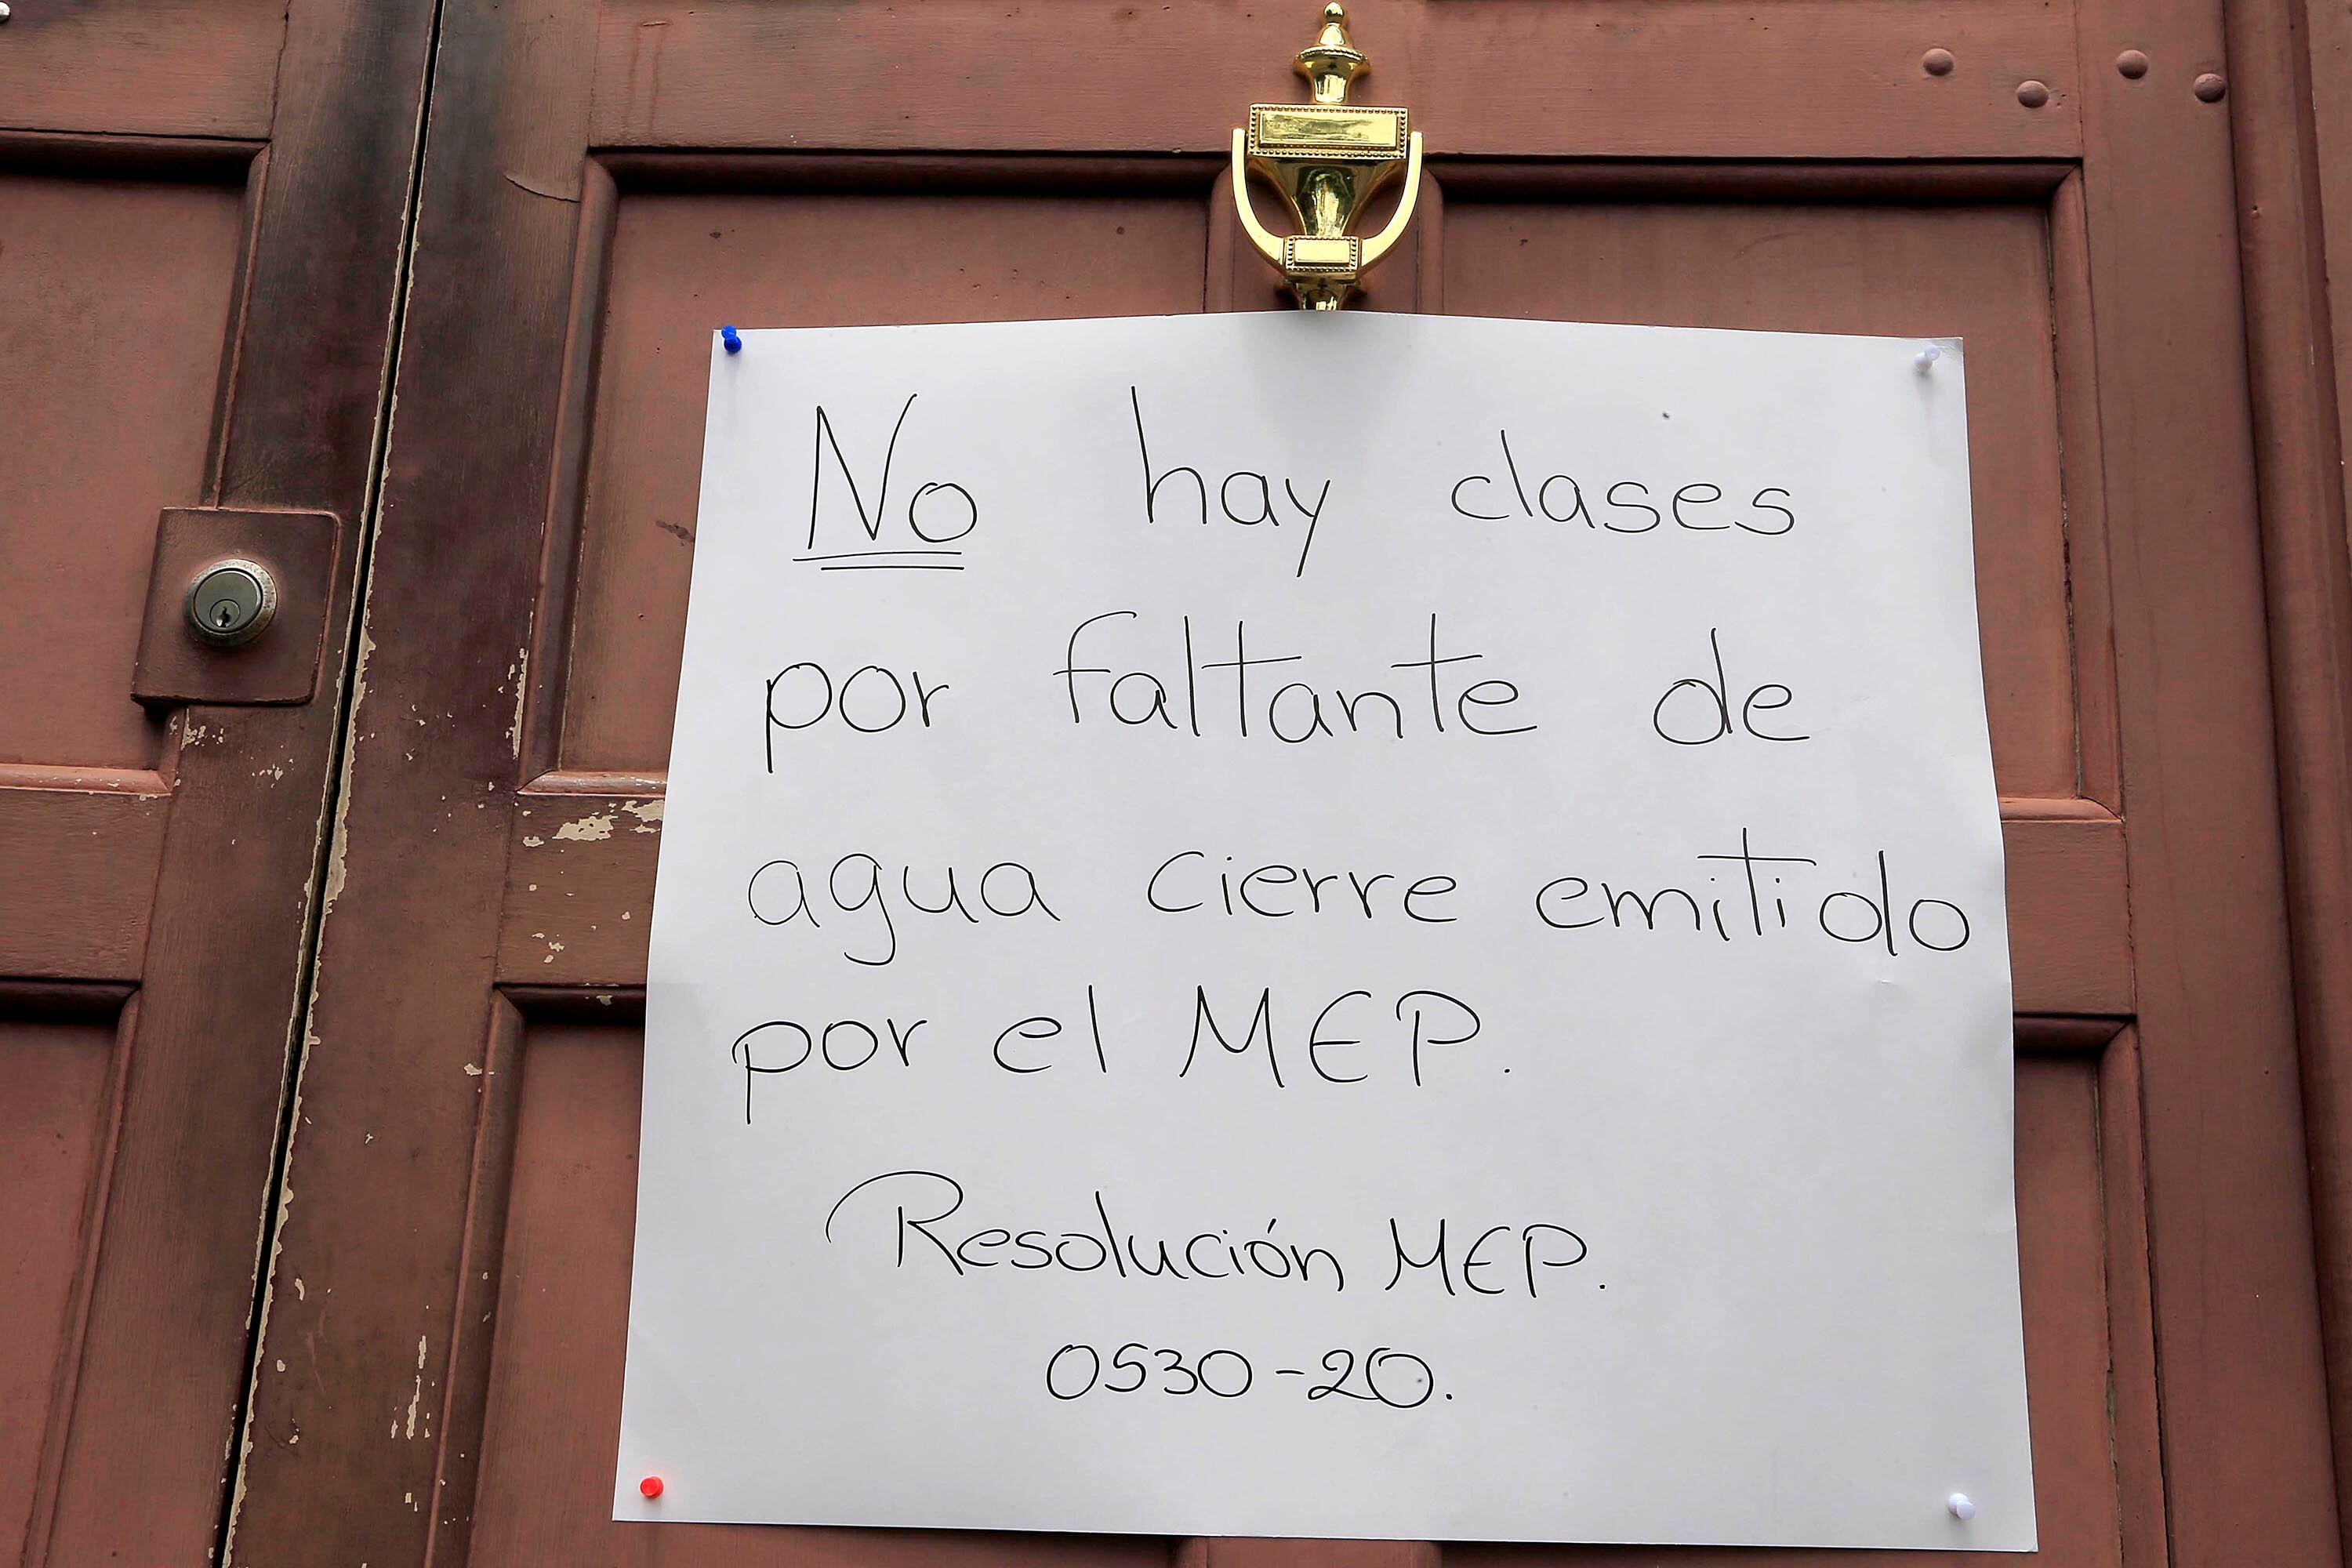 No hay clases
por faltante de
agua cierre emitido
por el MEP.
Resolución MEP.
0530-20.